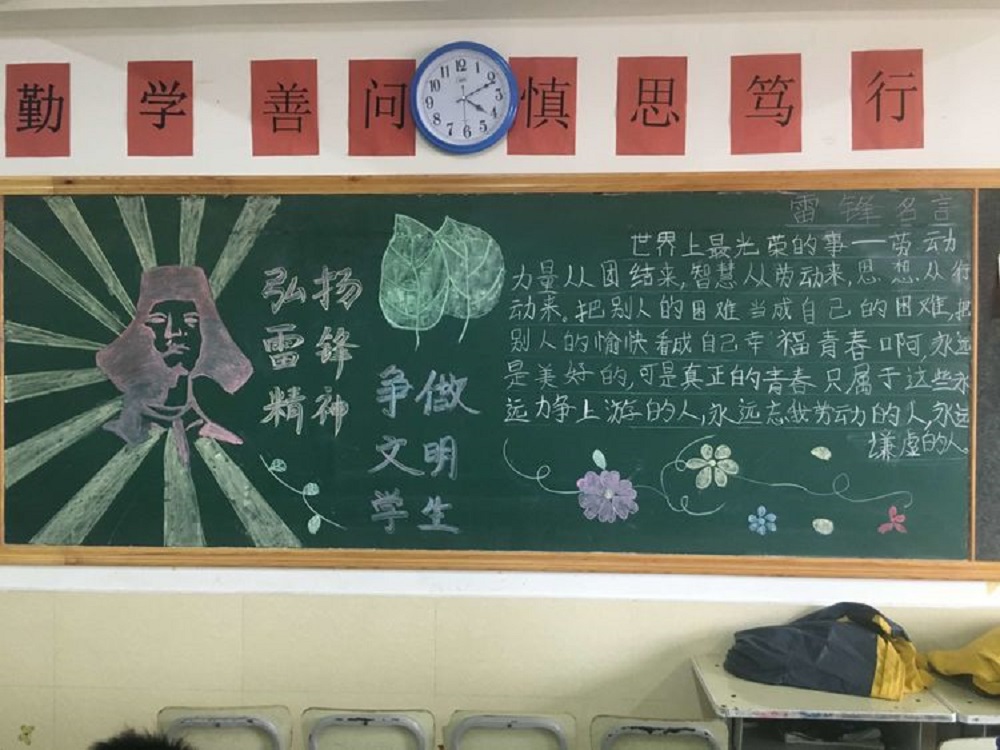 勤学善问慎思笃行
12 1 2 3 4 5 6 7 8 9 10 11
弘扬
雷锋
精神
争做
文明
学生
雷锋名言
世界上最光荣的事一劳动
力量从团结来,智慧从劳动来,思想从行
动来。把别人的困难当成自己的困难,把
别人的愉快看成自己幸福青春啊,永远
是美好的,可是真正的青春只属于这些永
远力争上游的人,永远忘我劳动的人,永远
谦虚的人